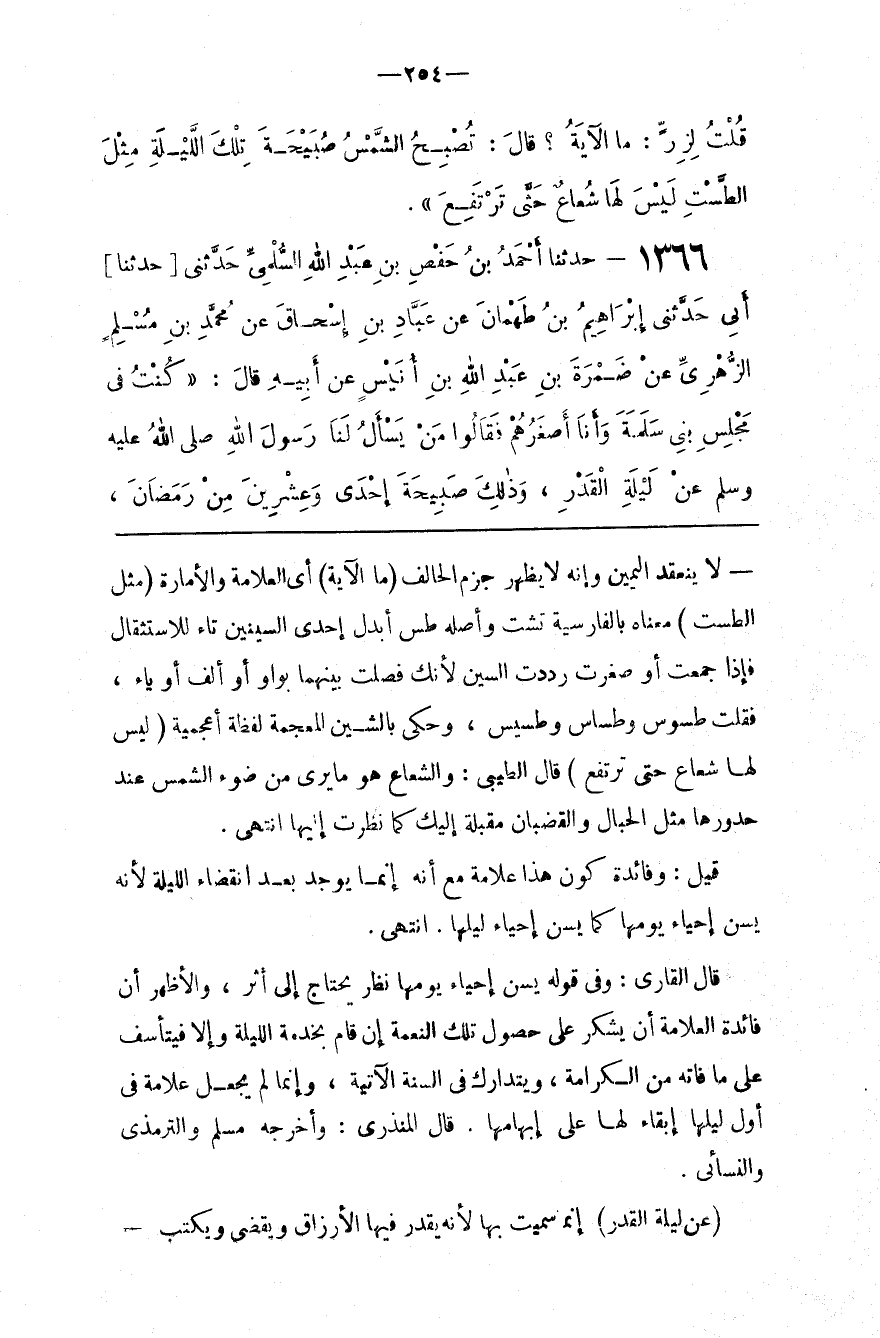 —٢٥٤—
قُلْتُ لِزِرٍّ : ما الآيَةُ ؟ قالَ : تُصْبِحُ الشَّمْسُ صُبَيْحَةَ تِلْكَ اللَّيْلَةِ مِثْلَ
الطَّسْتِ لَيْسَ لَهَا شُعاعٌ حَتَّى تَرْتَفِعَ » .
١٣٦٦ – حدثنا أَحْمَدُ بنُ حَفْصِ بنِ عَبْدِ اللهِ السُّلَمِيِّ حَدَّثَنى [ حدثنا ]
أَبِي حَدَّثَنى إِبْرَاهِيمُ بنُ طَهْمَانَ عن عَبَّادِ بنِ إِسْحَاقَ عن مُحمَّدِ بنِ مُسْلِمٍ
الزُّهْرِىِّ عنْ ضَمْرَةَ بنِ عَبْدِ اللهِ بنِ أُنَيْسٍ عن أَبِيهِ قالَ : « كُنْتُ فى
مَجْلِسِ بَنِي سَلَمَةَ وَأَنَا أَصغَرُهُمْ فَقَالُوا مَنْ يَسْأَلُ لَنَا رَسولَ اللهِ صلى اللهُ عليه
وسلم عنْ لَيْلَةِ الْقَدْرِ ، وَذٰلِكَ صَبِيحَةَ إِحْدَى وَعِشْرِينَ مِنْ رَمَضَانَ ،
— لا ينعقد اليمين وإنه لايظهر جزم الحالف (ما الآية) أى العلامة والأمارة (مثل
الطست ) معناه بالفارسية تشت وأصله طس أبدل إحدى السينين تاء للاستثقال
فإذا جمعت أو صغرت رددت السين لأنك فصلت بينهما بواو أو ألف أو ياء ،
فقلت طسوس وطساس وطسيس ، وحكى بالشين المعجمة لفظة أعجمية ( ليس
لها شعاع حتى ترتفع ) قال الطيبى : والشعاع هو مايرى من ضوء الشمس عند
حدورها مثل الحبال والقضبان مقبلة إليك كما نظرت إليها انتهى .
قيل : وفائدة كون هذا علامة مع أنه إنما يوجد بعد انقضاء الليلة لأنه
يسن إحياء يومها كما يسن إحياء ليلها . انتهى .
قال القارى : وفى قوله يسن إحياء يومها نظر يحتاج إلى أثر ، والأظهر أن
فائدة العلامة أن يشكر على حصول تلك النعمة إن قام بخدمة الليلة وإلا فيتأسف
على ما فاته من الكرامة ، ويتدارك فى السنة الآتية ، وإنما لم يجعل علامة فى
أول ليلها إبقاء لها على إبهامها . قال المنذرى : وأخرجه مسلم والترمذى
والنسائى .
(عن ليلة القدر) إنما سميت بها لأنه يقدر فيها الأرزاق ويقضى ويكتب —